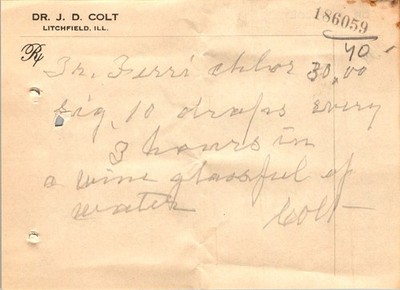 DR. J. D. COLT
LITCHFIELD, ILL.
186059
40
Rx
Tr. Ferri chlor 30,00
Sig. 10 drops every
3 hours in
a wine glassful of
water
Colt